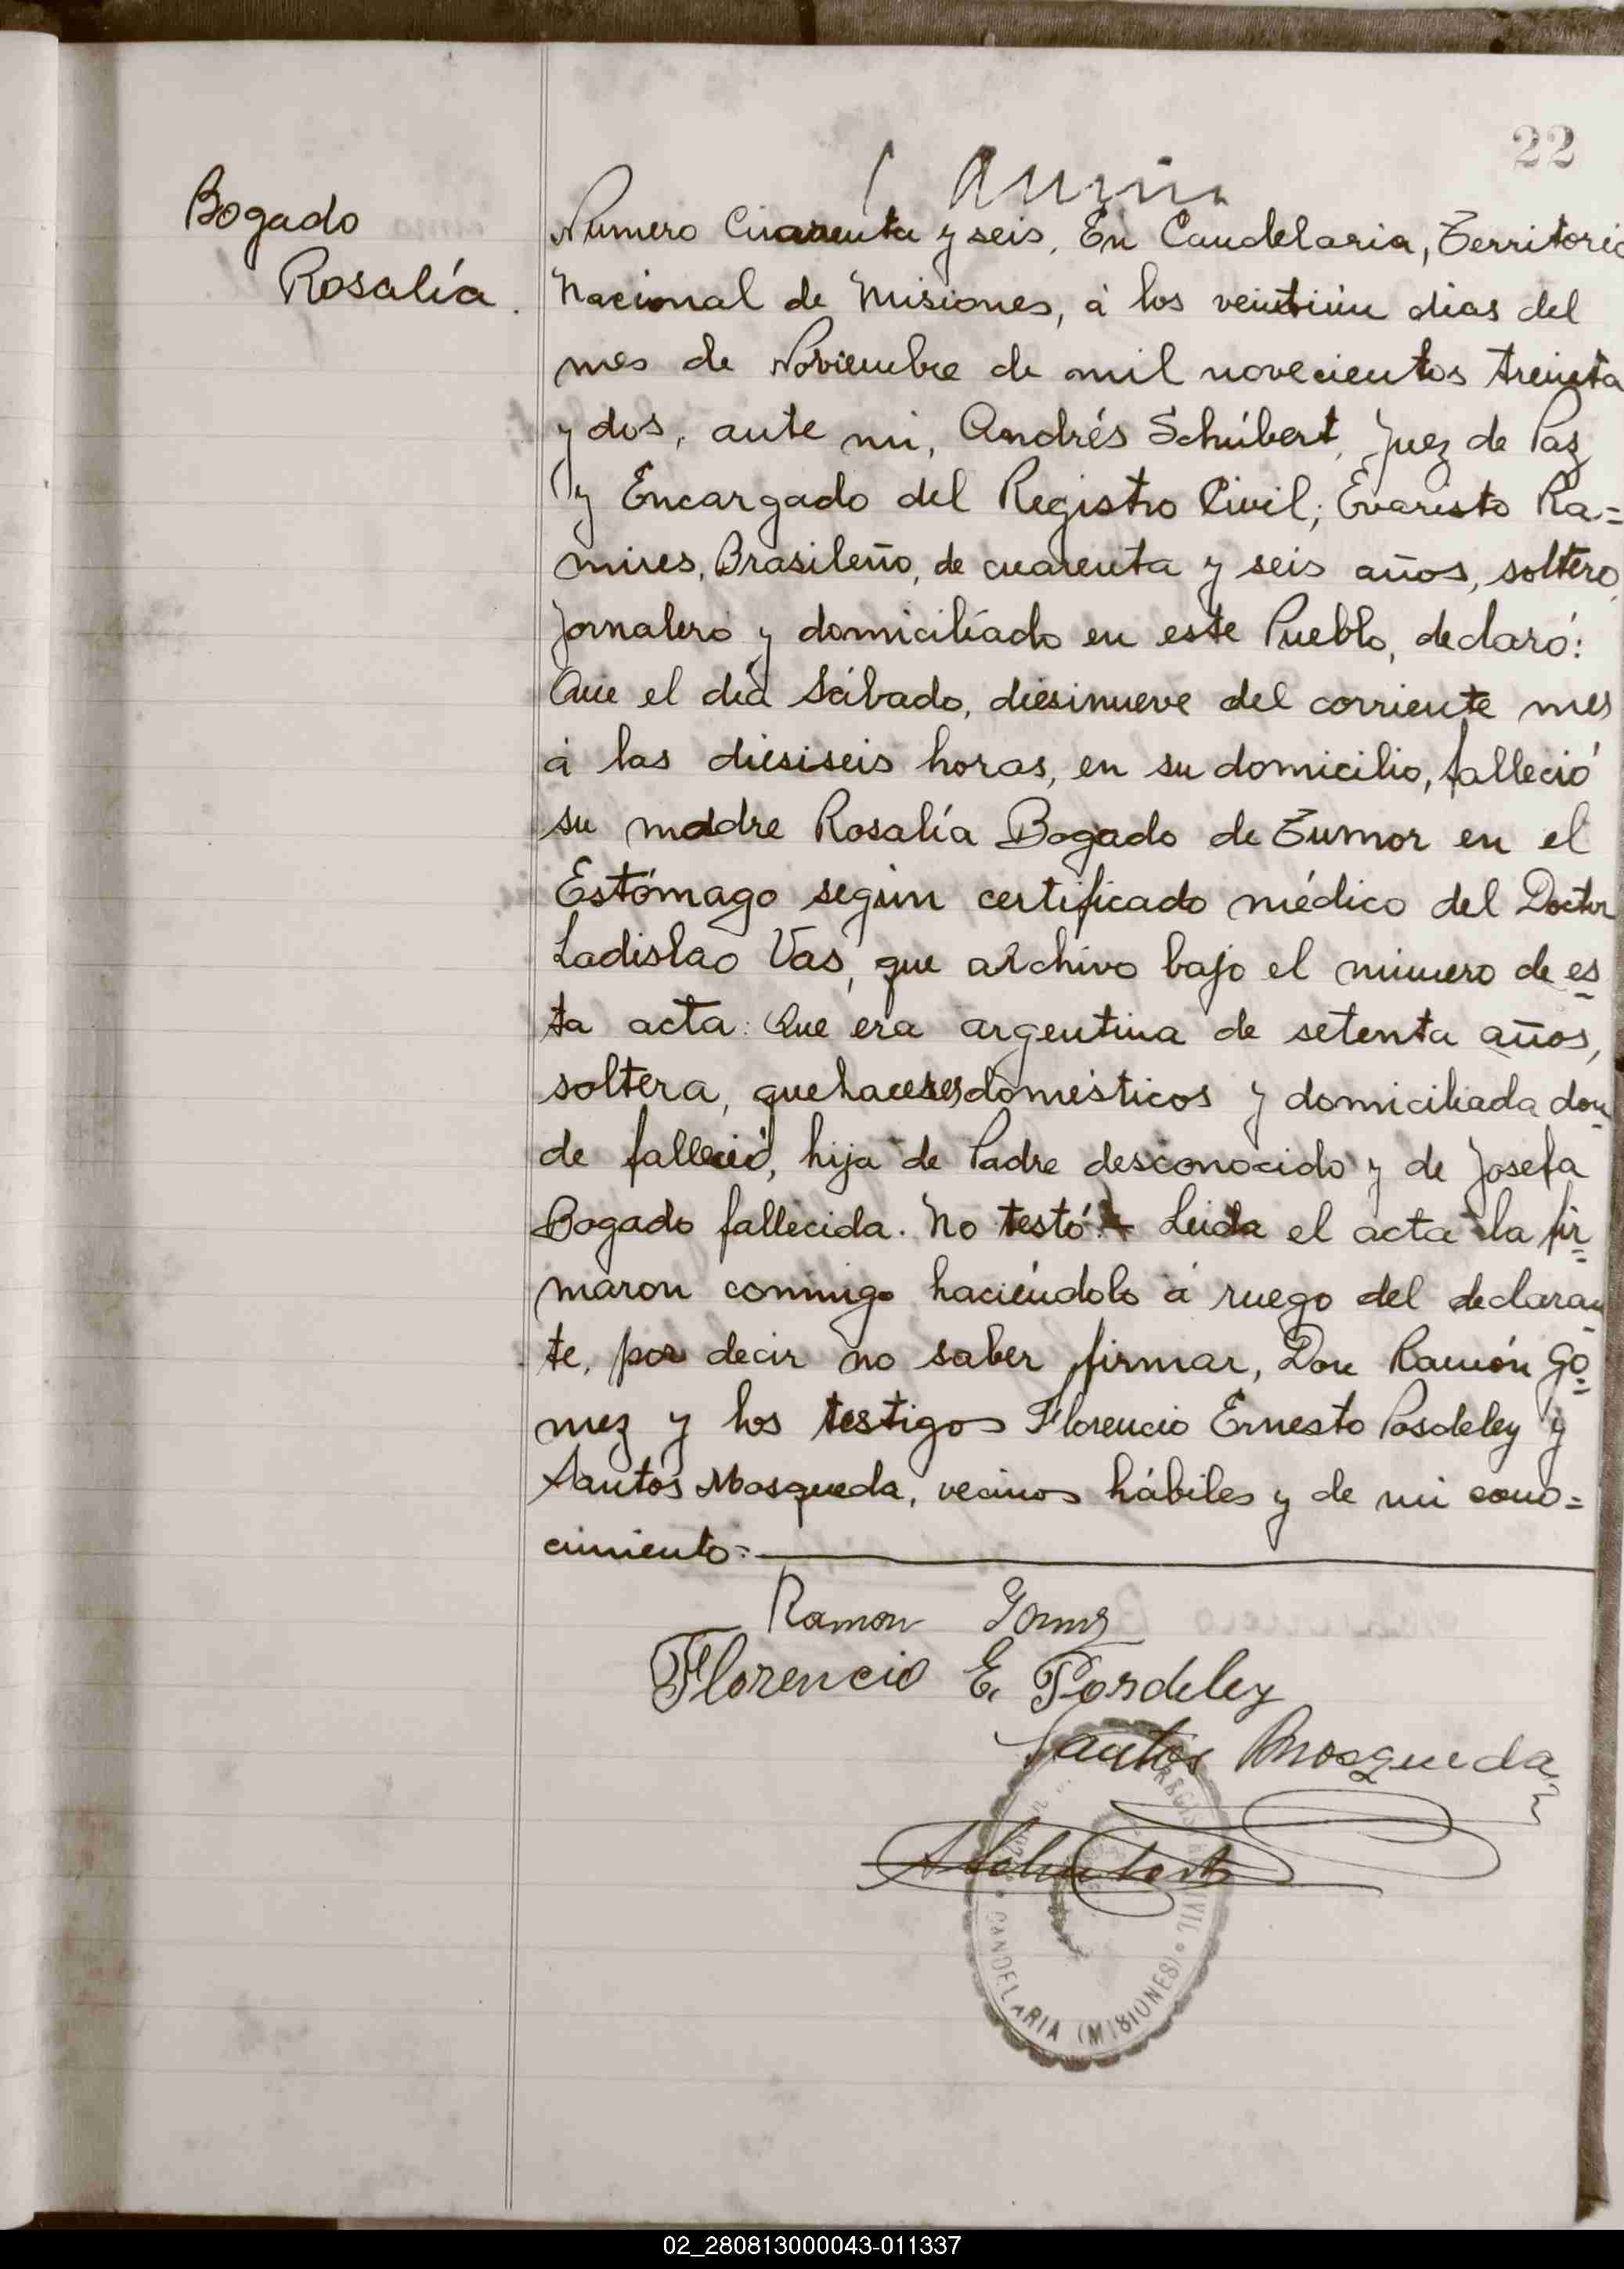 22
Bogado
Rosalía.
Numero Cuarenta y seis. En Candelaria, Territorio
Nacional de Misiones, á los veintiún dias del
mes de Noviembre de mil novecientos treinta
y dos, ante mi, Andrés Schúbert, Juez de Paz
y Encargado del Registro Civil; Evaristo Ra=
mires, Brasileño, de cuarenta y seis años, soltero,
Jornalero y domiciliado en este Pueblo, declaró:
Que el día Sábado, diesinueve del corriente mes
á las diesiseis horas, en su domicilio, falleció
su madre Rosalía Bogado de Tumor en el
Estómago según certificado médico del Doctor
Ladislao Vas, que archivo bajo el número de es
ta acta: Que era argentina de setenta años,
soltera, quehaceres domésticos y domiciliada don
de falleció, hija de Padre desconocido y de Josefa
Bogado fallecida. No testó. Leida el acta la fir
maron conmigo haciéndolo á ruego del declaran
te, por decir no saber firmar, Don Ramón Go
mez y los testigos Florencio Ernesto Posdeley y
Santos Mosqueda, vecinos hábiles y de mi cono=
cimiento.
Ramon Gomez
Florencio E. Posdeley
Santos Mosqueda
ASchubert
CANDELARIA (MISIONES)
02_280813000043-011337